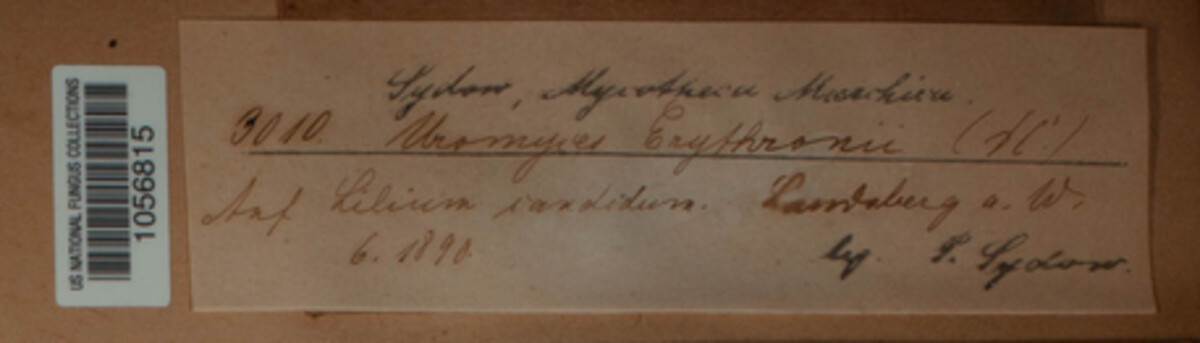 US NATIONAL FUNGUS COLLECTIONS
1056815
Sydow, Mycotheca Marchica.
3010. Uromyces Erythronii (DC.)
Auf Lilium candidum. Landsberg a. W.
6. 1890 lg. P. Sydow.